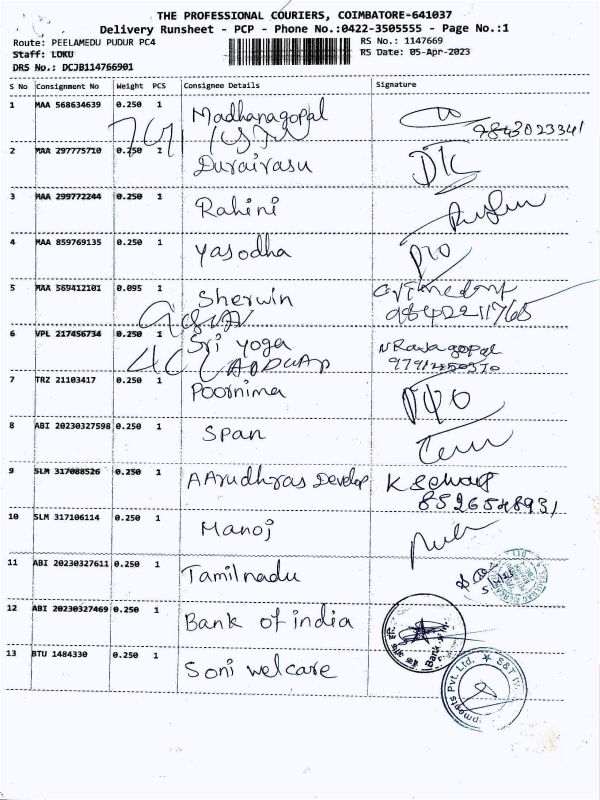 THE PROFESSIONAL COURIERS, COIMBATORE-641037
Delivery Runsheet - PCP - Phone No.:0422-3505555 - Page No.:1
Route: PEELAMEDU PUDUR PC4
RS No.: 1147669
Staff: LOKU
RS Date: 05-Apr-2023
DRS No.: DCJB114766901
S No Consignment No Weight PCS Consignee Details Signature
1 MAA 568634639 0.250 1 Madhanagopal
9843023341
2 MAA 297775710 0.250 1 Durairasu
3 MAA 299772244 0.250 1 Rahini
4 MAA 859769135 0.250 1 Yasodha
5 MAA 569412101 0.095 1 Sherwin
9842211765
6 VPL 217456734 0.250 1 Sri yoga N Rajagopal
7 TRZ 21103417 0.250 1 Poornima
8 ABI 20230327598 0.250 1 Span
9 SLM 317088526 0.250 1 AArudhras Develop
8526548931
10 SLM 317106114 0.250 1 Manoj
11 ABI 20230327611 0.250 1 Tamilnadu
12 ABI 20230327469 0.250 1 Bank of india
13 BTU 1484330 0.250 1 Soni welcare
Pvt. Ltd.